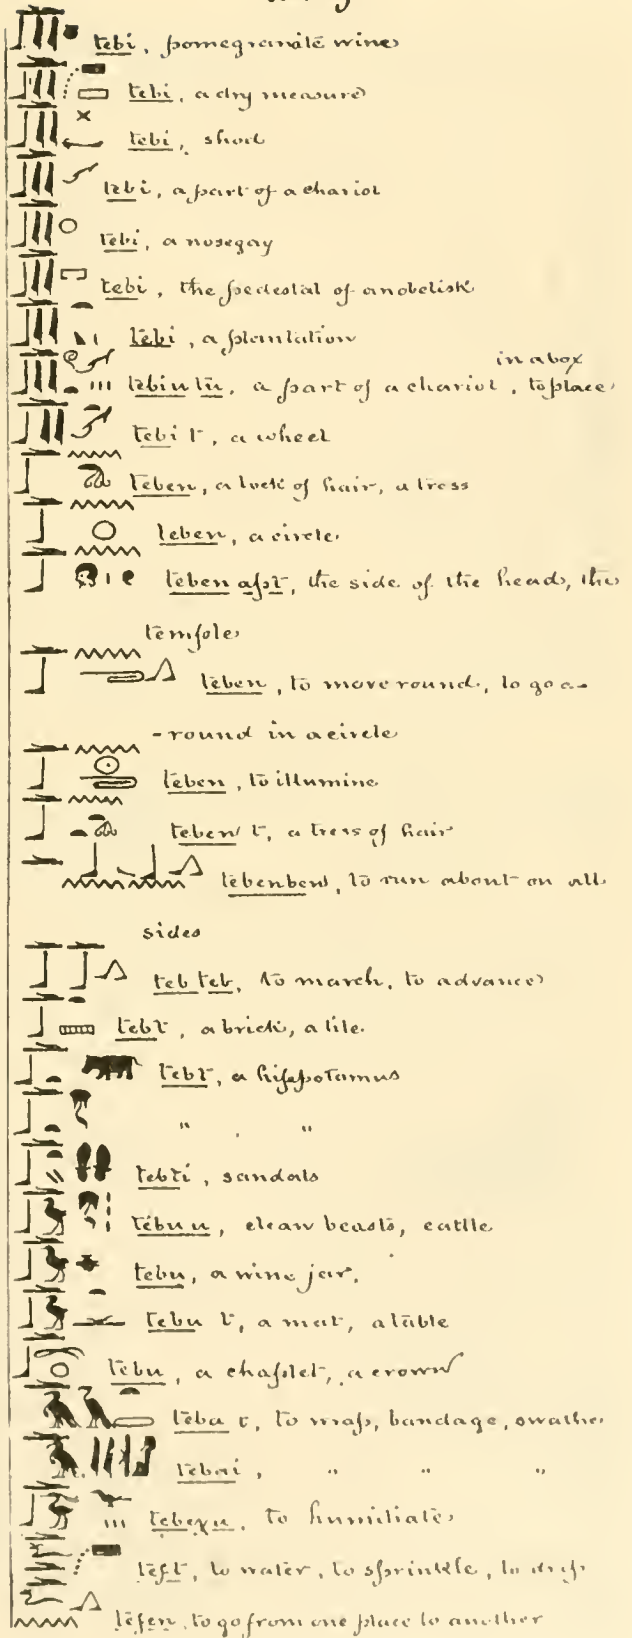 tebi, pomegranate wine
tebi, a dry measure
tebi, shod
tebi, a part of a chariot
tebi, a nosegay
tebi, the pedestal of an obelisk
tebi, a plantation
in a box
tebiutu, a part of a chariot, to place
tebi t, a wheel
teben, a lock of hair, a tress
teben, a circle
teben apt, the side of the head, the
temple
teben, to move round, to go a-
-round in a circle
teben, to illumine
teben t, a tress of hair
tebenben, to run about on all
sides
teb teb, to march, to advance
tebt, a brick, a tile
tebt, a hippopotamus
" . "
tebti, sandals
tebu u, clean beasts, cattle
tebu, a wine jar.
tebu t, a mat, a table
tebu, a chaplet, a crown
teba t, to wrap, bandage, swathe
tebai, " " "
tebexu, to humiliate
teft, to water, to sprinkle, to drip
tefen, to go from one place to another